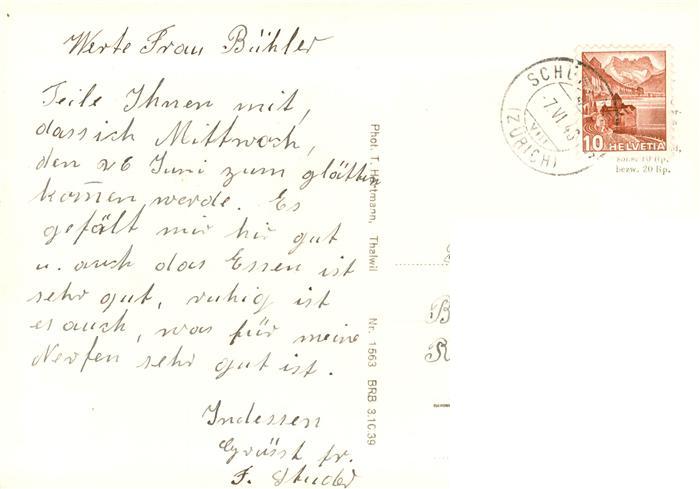 Werte Frau Bühler
Teile Ihnen mit,
dass ich Mittwoch,
den 26 Juni zum glätten
kom̄en werde. Es
gefält mir hir gut
u. auch das Essen ist
sehr gut, ruhig ist
es auch, was für meine
Nerfen sehr gut ist.
Indessen
Grüsst fr.
F. Studer
Phot. T. Hartmann, Thalwil Nr. 1563 BRB 3.10.39
SCHÜ
(ZÜRICH)
7.VI.
10 HELVETIA
10 Rp.
bezw. 20 Rp.